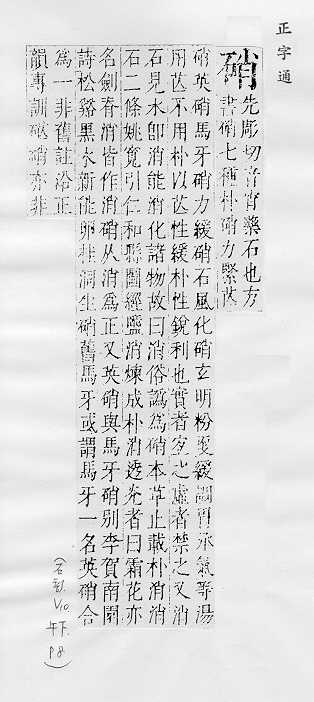 正字通
硝
先彫切音宵藥石也方
書硝七種朴硝力緊芒
硝英硝馬牙硝力緩硝石風化硝玄明粉更緩調胃承氣等湯
用芒不用朴以芒性緩朴性銳利也實者宜之虛者禁之又消
石見水卽消能消化諸物故曰消俗譌為硝本草止載朴消消
石二條姚寬引仁和縣圖經鹽消煉成朴消透光者曰霜花亦
名劍脊消皆作消硝从消為正又英硝與馬牙硝別李賀南園
詩松谿黑水新龍卵桂洞生硝舊馬牙或謂馬牙一名英硝合
為一非舊註沿正
韻專訓硝亦非
(石部. V10 午下 P8)